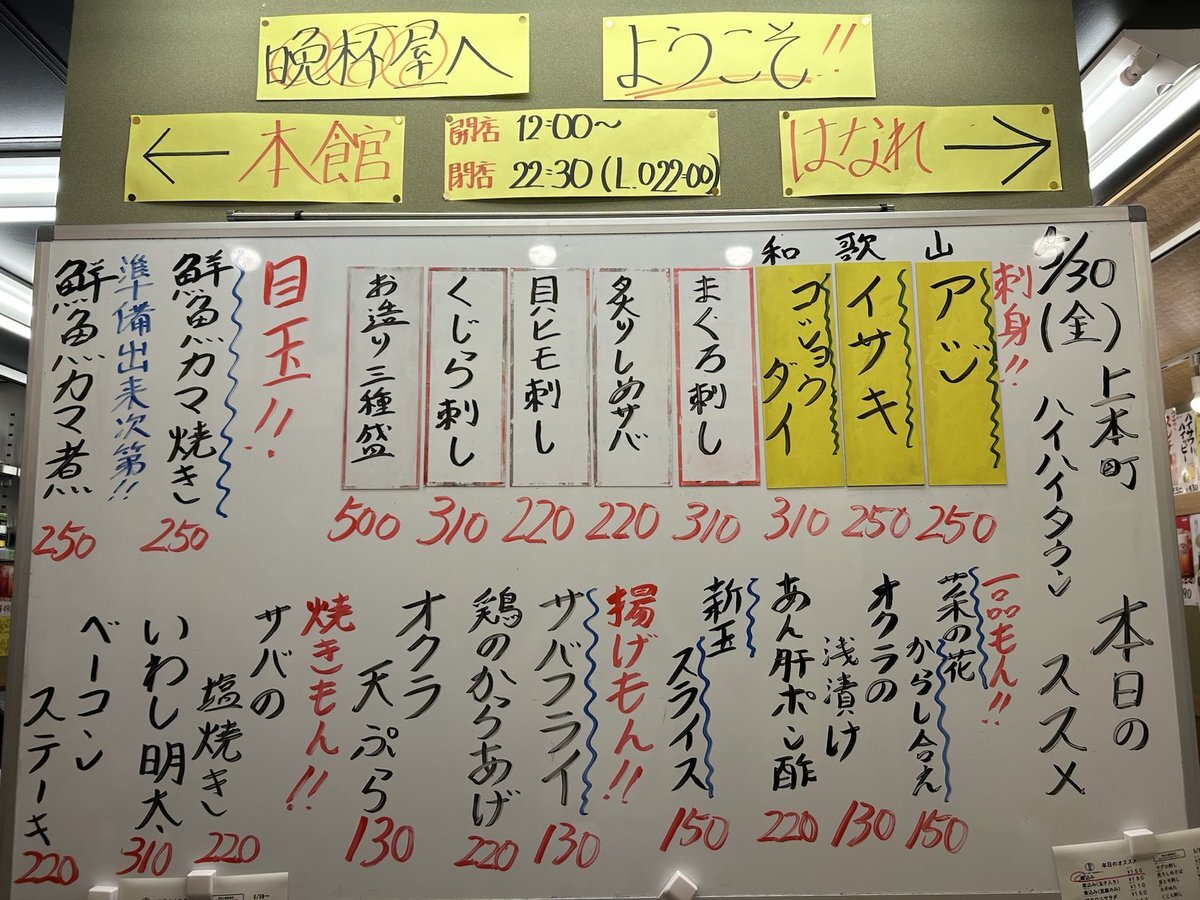 晩杯屋へ
ようこそ!!
← 本館
開店 12:00〜
閉店 22:30(L.O22:00)
はなれ →
5/30(金) 上本町 本日の
ハイハイタウン ススメ
刺身!!
和歌山
アジ 250
イサキ 250
ゴショウダイ 310
まぐろ刺し 310
炙りしめサバ 220
貝ヒモ刺し 220
くじら刺し 310
お造り三種盛 500
目玉!!
鮮魚カマ焼き 250
準備出来次第!!
鮮魚カマ煮 250
一品もん!!
菜の花
からし合え 150
オクラの
浅漬け 130
あん肝ポン酢 220
新玉
スライス 150
揚げもん!!
サバフライ 130
鶏のからあげ 220
オクラ
天ぷら 130
焼きもん!!
サバの
塩焼き 220
いわし明太 310
ベーコン
ステーキ 220
本日のオススメ